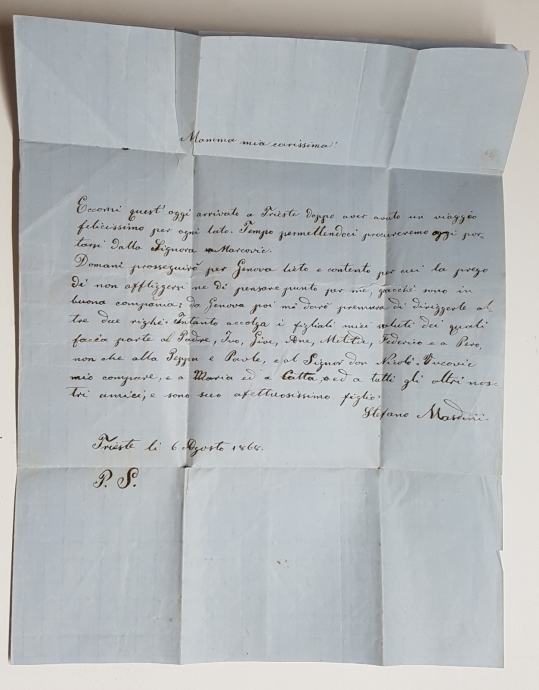 Mamma mia carissima!
Eccomi quest' oggi arrivato a Trieste doppo aver avuto un viaggio
felicissimo per ogni lato. Tempo permettendoci procureremo oggi por-
tarsi dalla Signora Marcovic.
Domani proseguirò per Genova lieto e contento per cui la prego
di non affliggersi ne di pensare punto per me, giacchè sono in
buona compania; da Genova poi mi darò premura di dirizzerle al-
tre due righe. Intanto accolga i figliali miei saluti dei quali
facia parte al Padre, Ivo, Give, Ane, Militta, Federico e a Pero,
non che alla Peppa e Paole, e al Signor don Nicolò Vucovic
mio compare, e a Maria ed a Catta, ed a tutti gli altri nos-
tri amici, e sono suo afettuosissimo figlio:
Stefano
Trieste li 6 Agosto 1868.
P. S.